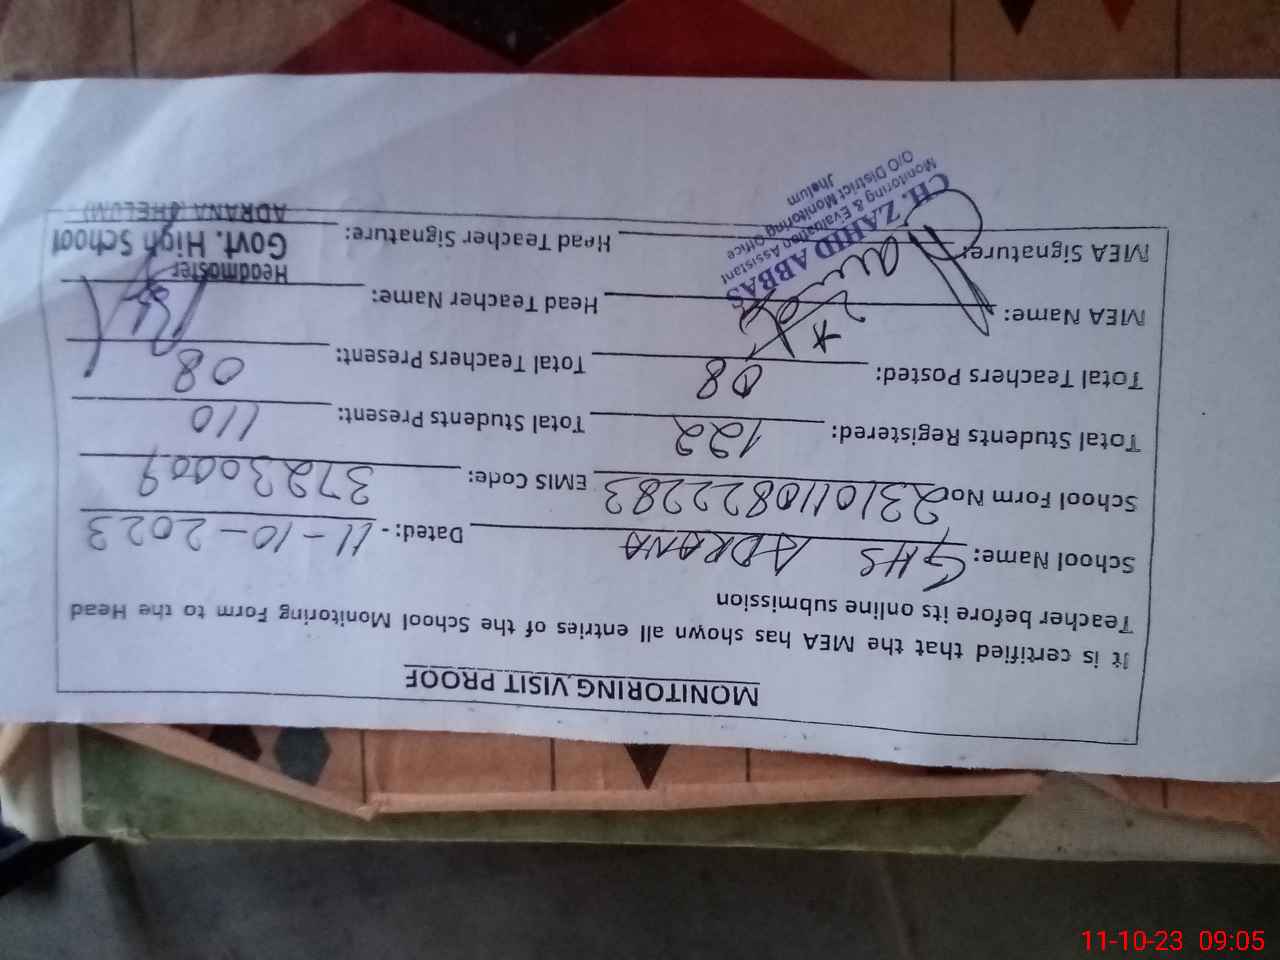 MONITORING VISIT PROOF
It is certified that the MEA has shown all entries of the School Monitoring Form to the Head
Teacher before its online submission
School Name: GHS ADRANA Dated:- 11-10-2023
School Form No 2310110822283 EMIS Code: 37230009
Total Students Registered: 122 Total Students Present: 110
Total Teachers Posted: 08 Total Teachers Present: 08
MEA Name: Head Teacher Name:
MEA Signature: Head Teacher Signature:
CH. ZAHID ABBAS
Monitoring & Evaluation Assistant
O/O District Monitoring Office
Jhelum
Headmaster
Govt. High School
ADRANA (JHELUM)
11-10-23 09:05